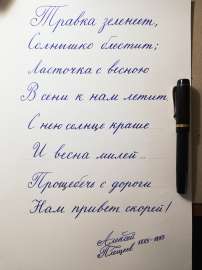 Травка зеленит,
Солнышко блестит;
Ласточка с весною
В сени к нам летит
С нею солнце краше
И весна милей...
Прощебечь с дороги
Нам привет скорей!
Алексей
Плещеев